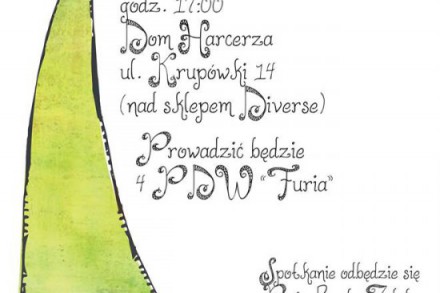 godz. 17:00
Dom Harcerza
ul. Krupówki 14
(nad sklepem Diverse)
Prowadzić będzie
4 PDW "Furia"
Spotkanie odbędzie się